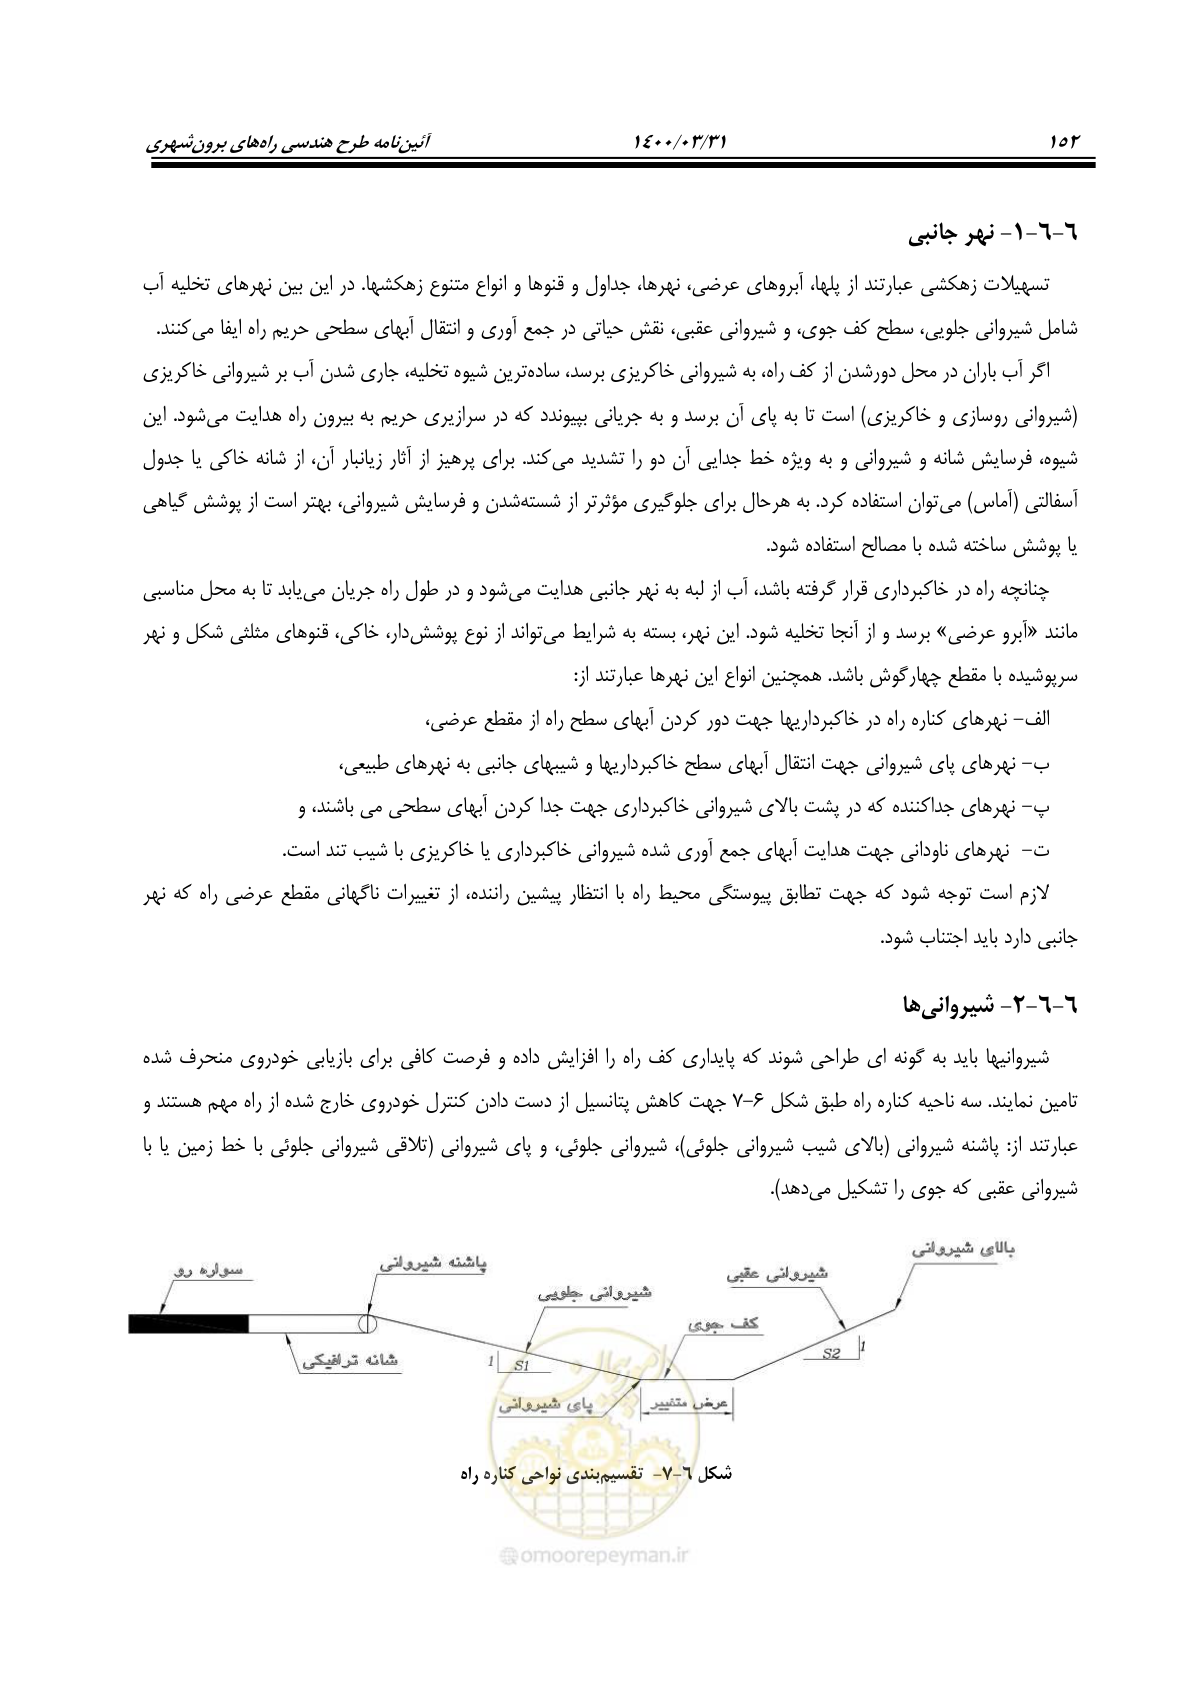 ۱۵۲
۱۴۰۰/۰۳/۳۱
آئین‌نامه طرح هندسی راه‌های برون‌شهری
۶-۶-۱- نهر جانبی
تسهیلات زهکشی عبارتند از پلها، آبروهای عرضی، نهرها، جداول و قنوها و انواع متنوع زهکشها. در این بین نهرهای تخلیه آب
شامل شیروانی جلویی، سطح کف جوی، و شیروانی عقبی، نقش حیاتی در جمع آوری و انتقال آبهای سطحی حریم راه ایفا می‌کنند.
اگر آب باران در محل دورشدن از کف راه، به شیروانی خاکریزی برسد، ساده‌ترین شیوه تخلیه، جاری شدن آب بر شیروانی خاکریزی
(شیروانی روسازی و خاکریزی) است تا به پای آن برسد و به جریانی بپیوندد که در سرازیری حریم به بیرون راه هدایت می‌شود. این
شیوه، فرسایش شانه و شیروانی و به ویژه خط جدایی آن دو را تشدید می‌کند. برای پرهیز از آثار زیانبار آن، از شانه خاکی یا جدول
آسفالتی (آماس) می‌توان استفاده کرد. به هرحال برای جلوگیری مؤثرتر از شسته‌شدن و فرسایش شیروانی، بهتر است از پوشش گیاهی
یا پوشش ساخته شده با مصالح استفاده شود.
چنانچه راه در خاکبرداری قرار گرفته باشد، آب از لبه به نهر جانبی هدایت می‌شود و در طول راه جریان می‌یابد تا به محل مناسبی
مانند «آبرو عرضی» برسد و از آنجا تخلیه شود. این نهر، بسته به شرایط می‌تواند از نوع پوشش‌دار، خاکی، قنوهای مثلثی شکل و نهر
سرپوشیده با مقطع چهارگوش باشد. همچنین انواع این نهرها عبارتند از:
الف- نهرهای کناره راه در خاکبرداریها جهت دور کردن آبهای سطح راه از مقطع عرضی،
ب- نهرهای پای شیروانی جهت انتقال آبهای سطح خاکبرداریها و شیبهای جانبی به نهرهای طبیعی،
پ- نهرهای جداکننده که در پشت بالای شیروانی خاکبرداری جهت جدا کردن آبهای سطحی می باشند، و
ت- نهرهای ناودانی جهت هدایت آبهای جمع آوری شده شیروانی خاکبرداری یا خاکریزی با شیب تند است.
لازم است توجه شود که جهت تطابق پیوستگی محیط راه با انتظار پیشین راننده، از تغییرات ناگهانی مقطع عرضی راه که نهر
جانبی دارد باید اجتناب شود.
۶-۶-۲- شیروانی‌ها
شیروانیها باید به گونه ای طراحی شوند که پایداری کف راه را افزایش داده و فرصت کافی برای بازیابی خودروی منحرف شده
تامین نمایند. سه ناحیه کناره راه طبق شکل ۶-۷ جهت کاهش پتانسیل از دست دادن کنترل خودروی خارج شده از راه مهم هستند و
عبارتند از: پاشنه شیروانی (بالای شیب شیروانی جلوئی)، شیروانی جلوئی، و پای شیروانی (تلاقی شیروانی جلوئی با خط زمین یا با
شیروانی عقبی که جوی را تشکیل می‌دهد).
بالای شیروانی
شیروانی عقبی
پاشنه شیروانی
سواره رو
شیروانی جلویی
کف جوی
شانه ترافیکی
1 S1
S2 1
پای شیروانی
عرض متغییر
امور پیمان
شکل ۶-۷- تقسیم‌بندی نواحی کناره راه
@omoorepeyman.ir